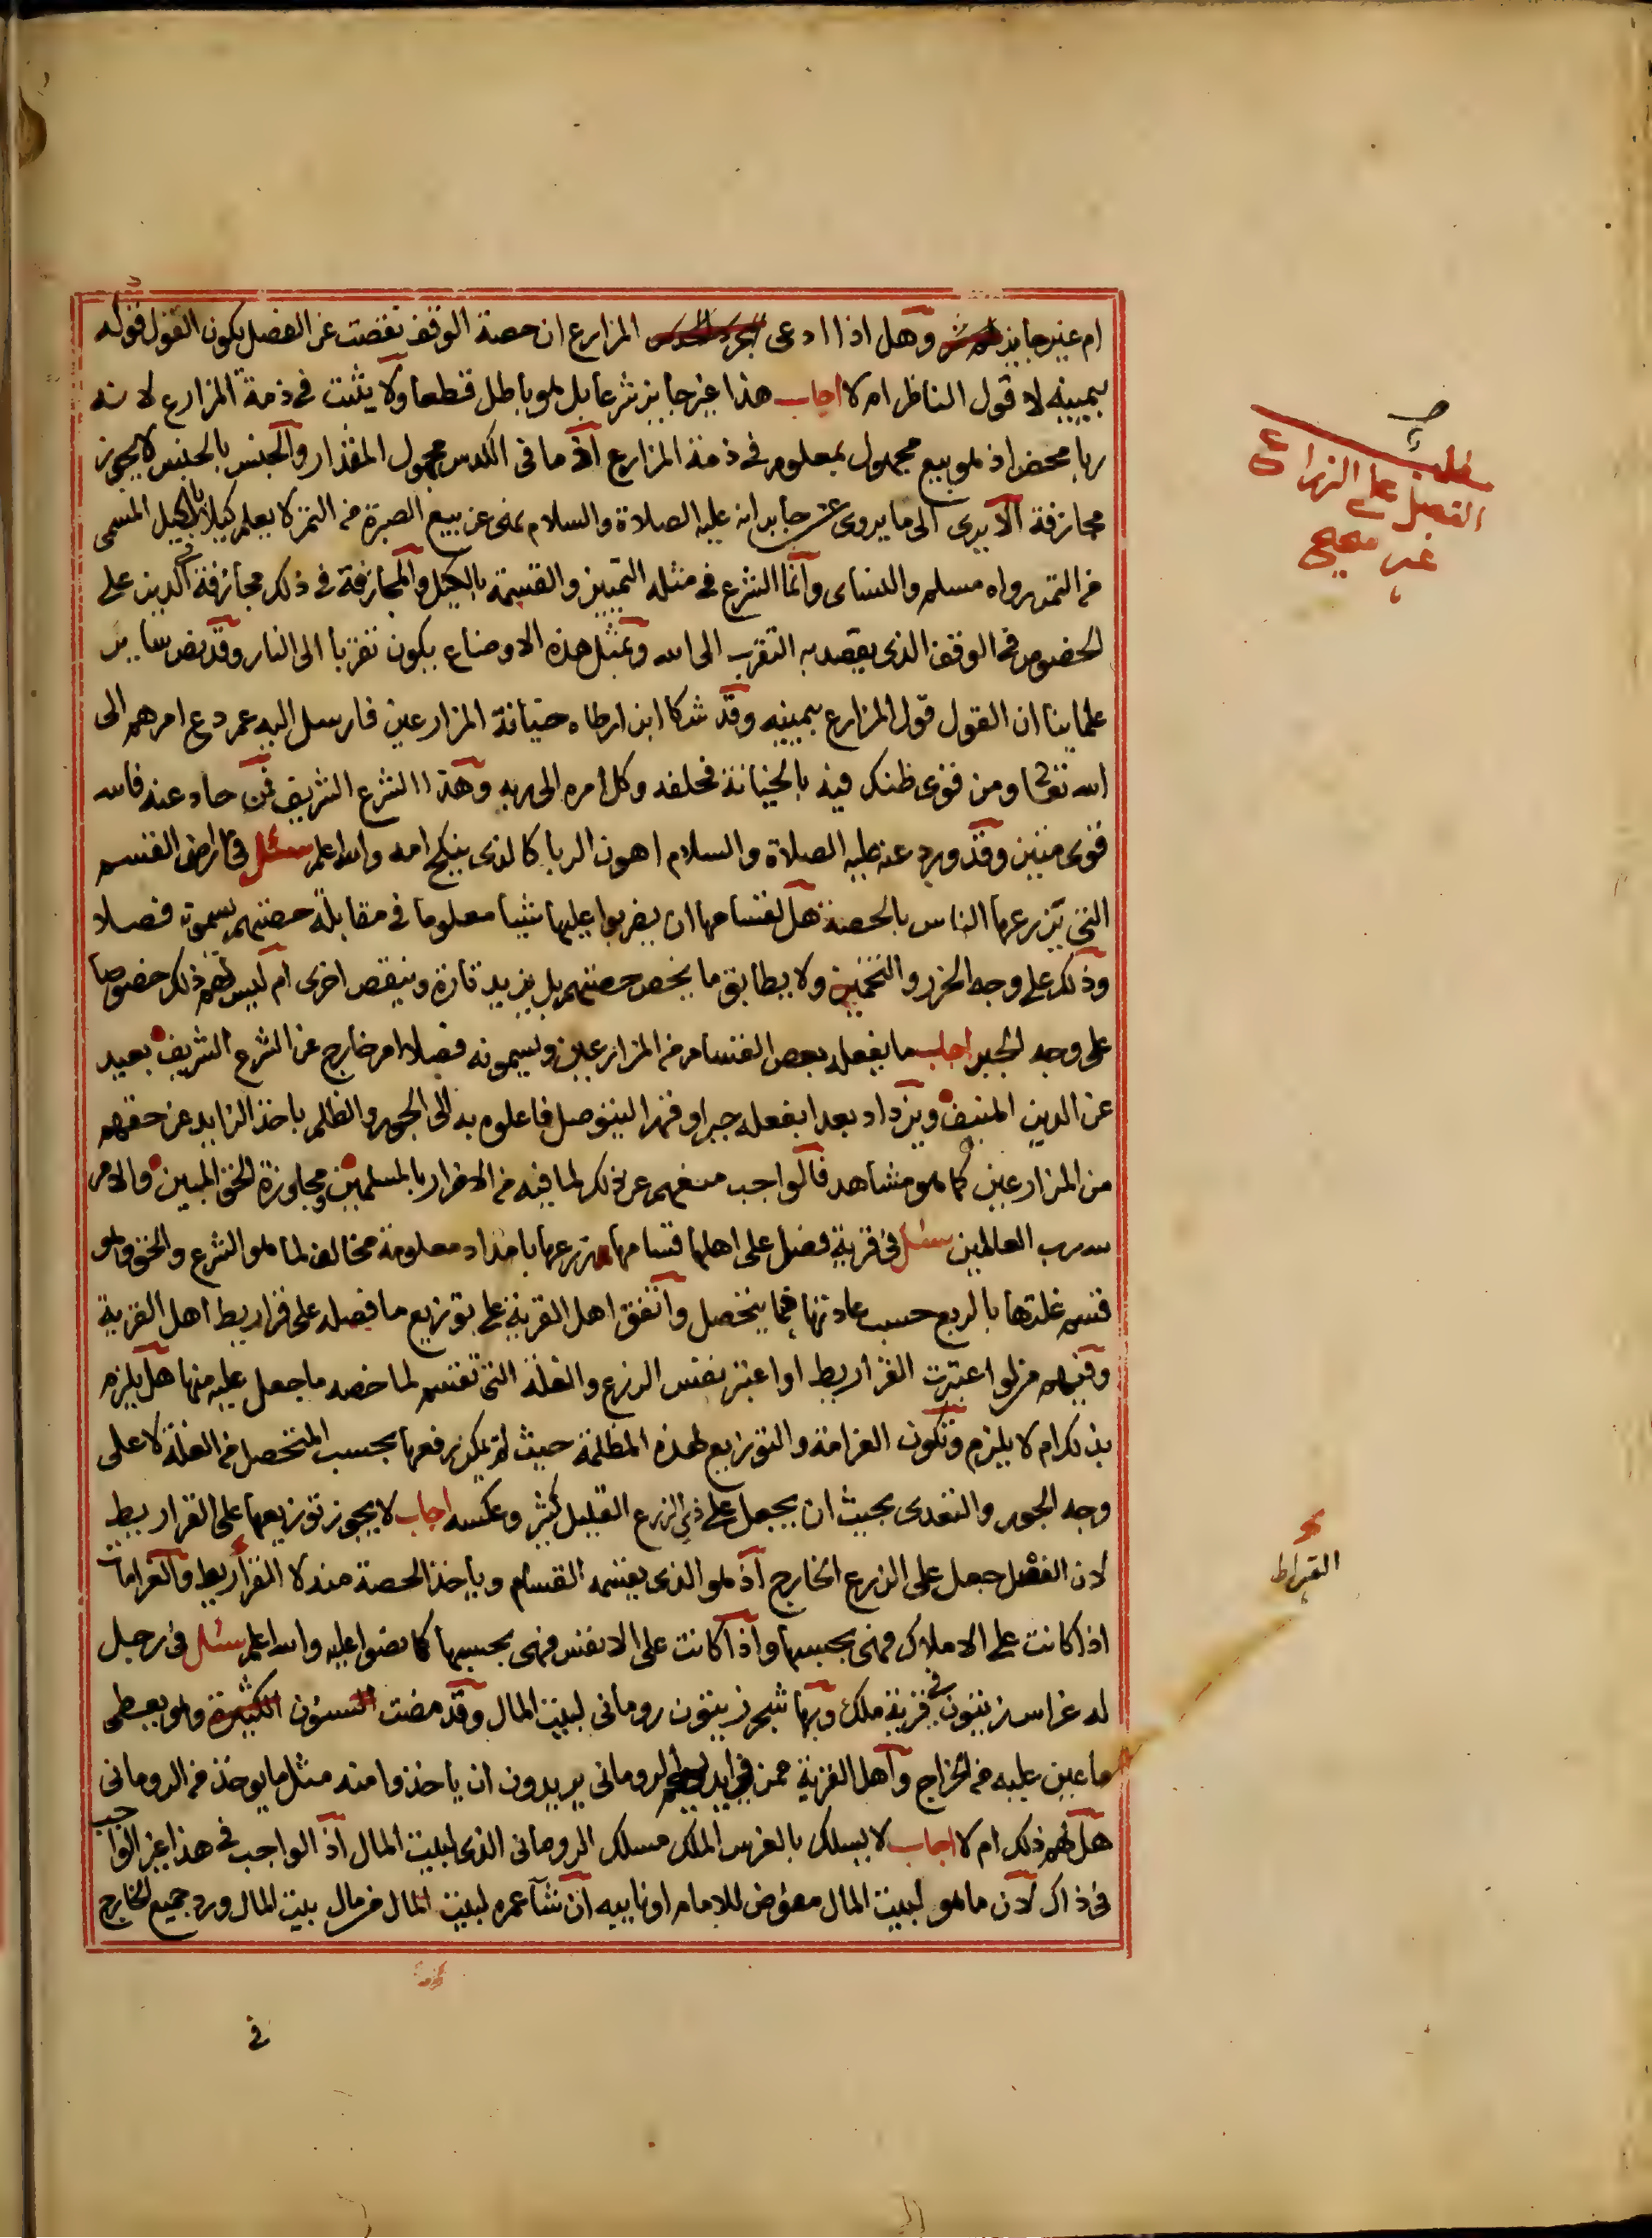 ام غير جايز وهل اذا ادعى المزارع ان حصة الوقف نقصت عن الفصل يكون القول قوله
بيمينه لا قول الناظر ام لا اجاب هذا غير جايز شرعا بل هو باطل قطعا ولا يثبت في ذمة المزارع لانه
ربا محض اذ هو بيع مجهول بمعلوم في ذمة المزارع اذ ما في الكدس مجهول المقدار والجنس بالجنس لا يجوز
مجازفة الا يرى الى ما يروى عن جابر انه عليه الصلاة والسلام نهى عن بيع الصبرة من التمر لا يعلم كيلها بالكيل المسمى
من التمر رواه مسلم والنساى وانما الشرع في مثله التمييز والقسمة بالكيل والمجازفة في ذلك مجازفة في الدين على
الخصوص في الوقف الذى يقصد به التقرب الى الله وبمثل هذه الاوضاع يكون تقربا الى النار وقد نص ساير
علماينا ان القول قول المزارع بيمينه وقد شكا ابن ارطاه خيانة المزارعين فارسل اليه عمر دع امرهم الى
الله تعالى ومن قوى ظنك فيه بالخيانة فحلفه وكل امره الى ربه وهذا الشرع الشريف فمن حاد عنه فالله
قوى متين وقد ورد عنه عليه الصلاة والسلام اهون الربا كالذى ينكح امه والله اعلم سئل في ارض القسم
التى تزرعها الناس بالحصة هل لقسامها ان يضربوا عليها شيئا معلوما في مقابلة حصتهم يسموته فصلا
وذلك على وجه الحزر والتخمين ولا يطابق ما يخص حصتهم بل يزيد تارة وينقص اخرى ام ليس لهم ذلك خصوصا
على وجه الجبر اجاب ما يفعله بعض القسام من المزارعين ويسمونه فصلا امر خارج عن الشرع الشريف بعيد
عن الدين المنيف ويزداد بعدا بفعله جبرا وقهرا ليتوصل فاعلوه به الى الجور والظلم باخذ الزايد عن حقهم
من المزارعين كما هو مشاهد فالواجب منعهم عن ذلك لما فيه من الاضرار بالمسلمين ومجاوزة الحق المبين والامر
لله رب العالمين سئل في قرية فصل على اهلها قسامها زرعها بامداد معلومة مخالف لما هو الشرع والحق وهو
قسم غلتها بالربع حسب عادتها فيما يتحصل واتفق اهل القرية على توزيع ما فصله على قراريط اهل القرية
وفيهم من لو اعتبرت القراريط او اعتبر نفس الزرع والغلة التى تقسم لما خصه ما جعل عليه منها هل يلزم
بذلك ام لا يلزم وتكون الغرامة والتوزيع لهذه المظلمة حيث لم يمكن رفعها بحسب المتحصل من الغلة لا على
وجه الجور والتعدى بحيث ان يجعل على ذي الزرع القليل كثير وعكسه اجاب لا يجوز توزيعها على القراريط
لان الفصل جعل على الزرع الخارج اذ هو الذى يقسمه القسام وياخذ الحصة منه لا القراريط والغرامات
اذا كانت على الاملاك فهى بحسبها واذا كانت على الانفس فهى بحسبها كما نصوا عليه والله اعلم سئل في رجل
له غراس زيتون في قرية ملك وبها شجر زيتون رومانى لبيت المال وقد مضت السنون الكثيرة وهو يعطى
ما عين عليه من الخراج واهل القرية ممن في ايديهم الرومانى يريدون ان ياخذوا منه مثل ما يوخذ من الرومانى
هل لهم ذلك ام لا اجاب لا يسلك بالغرس الملك مسلك الرومانى الذى لبيت المال اذ الواجب في هذا غير الواجب
في ذاك لان ما هو لبيت المال مفوض للامام او نايبه ان شآ عمره لبيت المال من مال بيت المال ورد جميع الخارج
في
مطلب
الفصل على الزراع
غير صحيح
القيراط